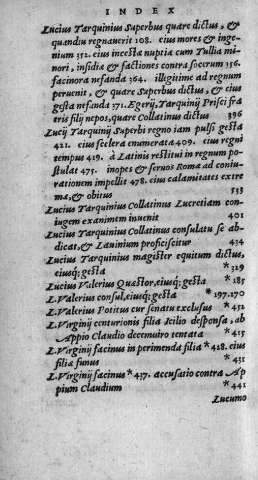 INDEX
Lucius Tarquinius Superbus quare dictus, &
quandiu regnauerit 208. eius mores & inge-
nium 352. eius incesta nuptia cum Tullia mi-
nori, insidiæ & factiones contra socerum 356.
facinora nefanda 364. illigitime ad regnum
peruenit, & quare Superbus dictus, & eius
gesta nefanda 371. Egerij, Tarquinij Prisci fra
tris filij nepos, quare Collatinus dictus 396
Lucij Tarquinij Superbi regno iam pulsi gesta
421. eius scelera enumerata 409. eius regni
tempus 419. à Latinis restitui in regnum po-
stulat 475. inopes & seruos Romæ ad coniu-
rationem impellit 478. eius calamitates extre
mæ, & obitus 533
Lucius Tarquinius Collatinus Lucretiam con-
iugem exanimem inuenit 401
Lucius Tarquinius Collatinus consulatu se ab-
dicat, & Lauinium proficiscitur 434
Lucius Tarquinius magister equitum dictus,
eiusq; gesta *329
Lucius Valerius Quæstor, eiusq; gesta *185
L. Valerius consul, eiusq; gesta *197.270
L. Valerius Potitus cur senatu exclusus *452
L. Virginij centurionis filia Icilio desponsa, ab
Appio Claudio decemuiro tentata *415
L. Virginij facinus in perimenda filia *428. eius
filiæ funus *431
L. Virginij facinus *437. accusatio contra Ap
pium Claudium *441
Lucumo